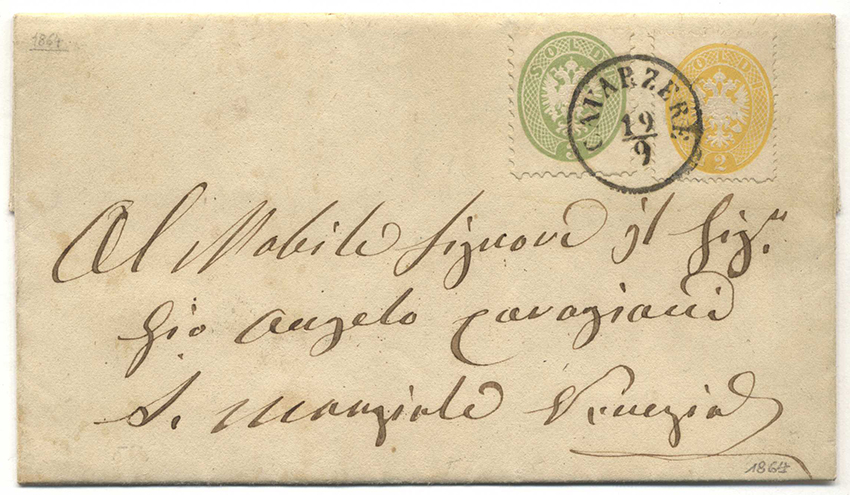 1864
SOLDI SOLDI
3 2
CAVARZERE
19
9
Al Nobile Signore il Sigr.
Gio Angelo
S. Marziale Venezia
1864